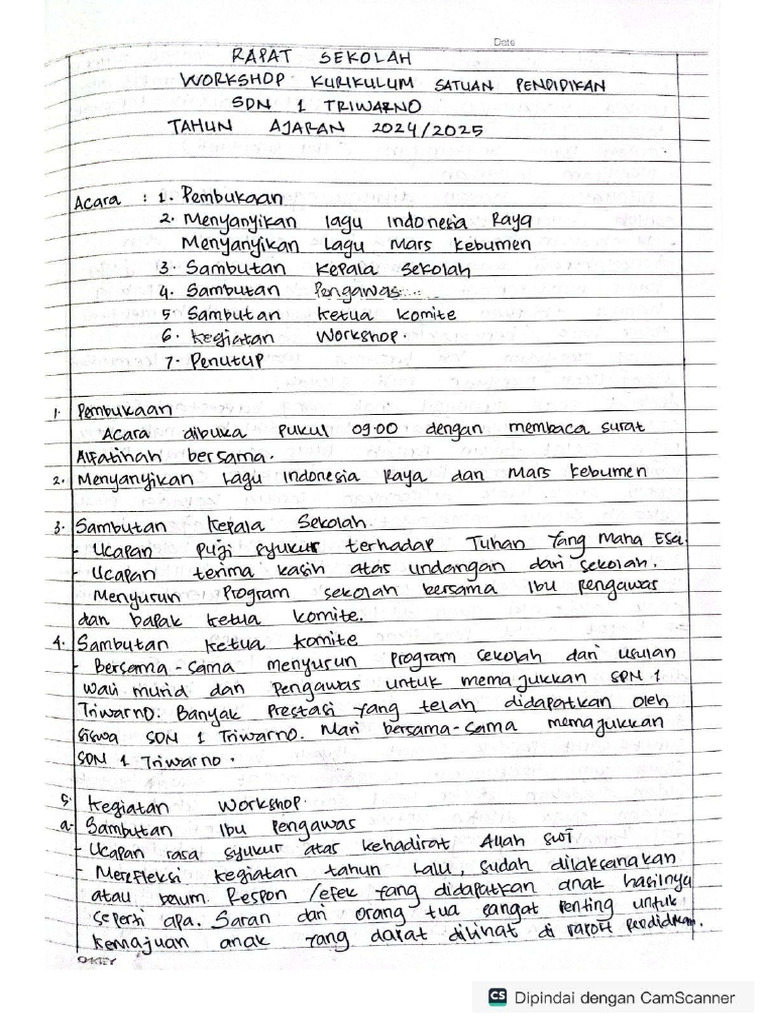 Date
RAPAT SEKOLAH
WORKSHOP KURIKULUM SATUAN PENDIDIKAN
SDN 1 TRIWARNO
TAHUN AJARAN 2024/2025
Acara : 1. Pembukaan
2. Menyanyikan lagu Indonesia Raya
Menyanyikan Lagu Mars Kebumen
3. Sambutan Kepala Sekolah
4. Sambutan Pengawas
5. Sambutan Ketua Komite
6. Kegiatan Workshop.
7. Penutup
1. Pembukaan
Acara dibuka pukul 09.00 dengan membaca surat
Alfatihah bersama.
2. Menyanyikan Lagu Indonesia Raya dan Mars Kebumen
3. Sambutan Kepala Sekolah
- Ucapan puji syukur terhadap Tuhan Yang Maha Esa.
- Ucapan terima kasih atas undangan dari sekolah.
Menyusun Program sekolah bersama Ibu pengawas
dan bapak ketua komite.
4. Sambutan Ketua Komite
- Bersama-sama menyusun program sekolah dari usulan
wali murid dan Pengawas untuk memajukkan SDN 1
Triwarno. Banyak Prestasi yang telah didapatkan oleh
siswa SDN 1 Triwarno. Mari bersama-sama memajukkan
SDN 1 Triwarno.
5. Kegiatan Workshop.
a. Sambutan Ibu Pengawas
- Ucapan rasa syukur atas kehadirat Allah SWT
- Merefleksi kegiatan tahun lalu, sudah dilaksanakan
atau belum. Respon /efek yang didapatkan anak hasilnya
seperti apa. Saran dari orang tua sangat penting untuk
kemajuan anak yang dapat dilihat di raport pendidikan.
OKEY
CS Dipindai dengan CamScanner